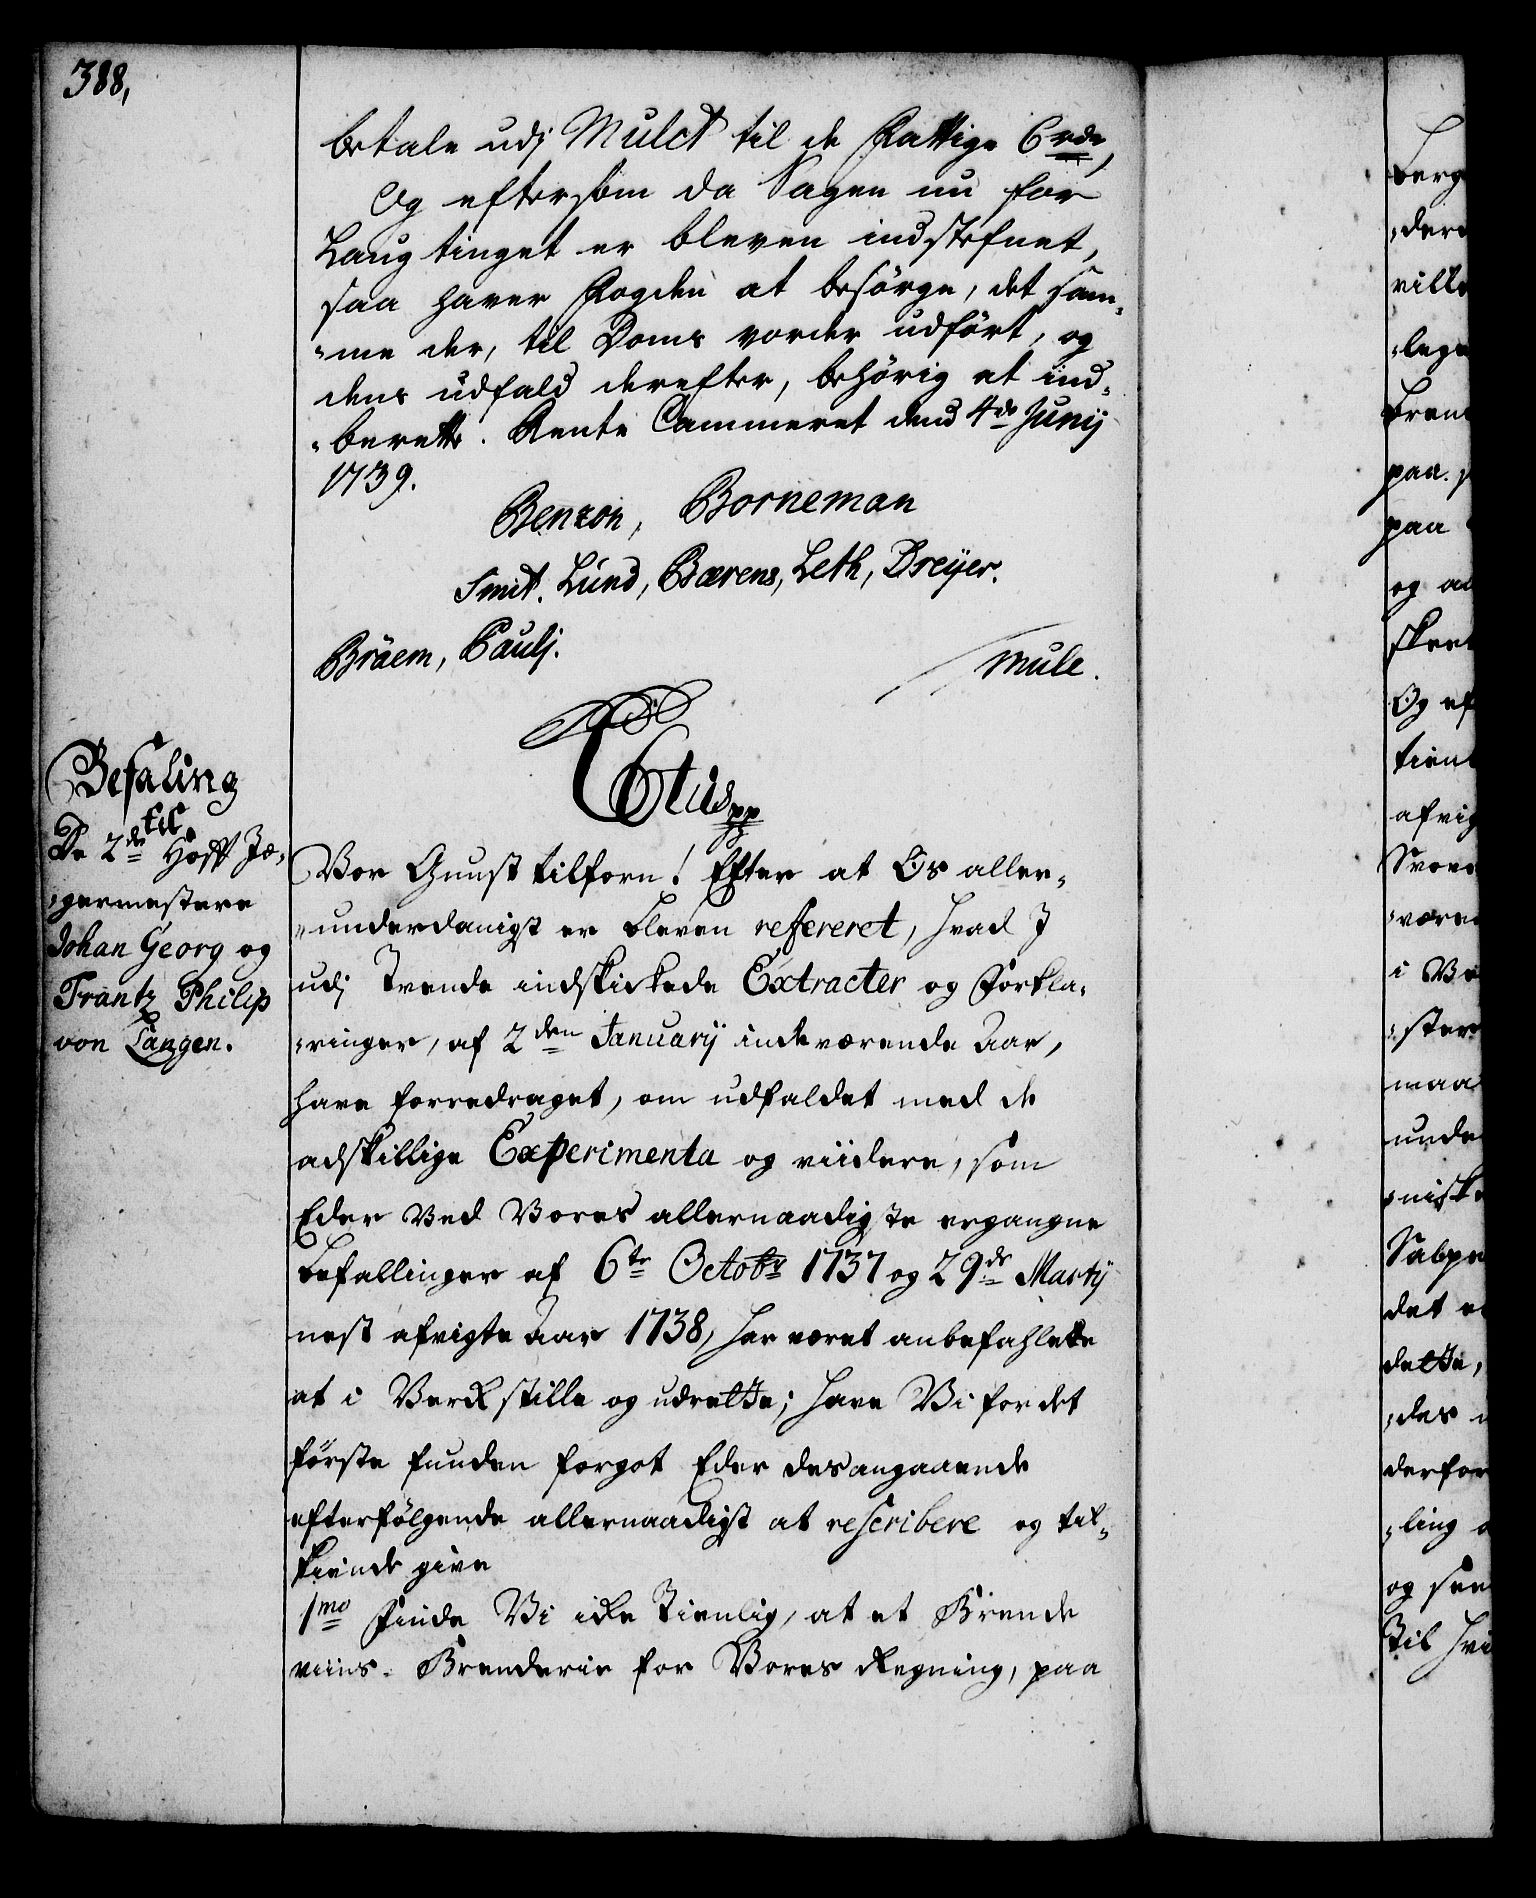 388,
betale udj Mulct til de Fattige 6 rdr,
Og eftersom da Sagen nu for
Laugtinget er bleven indstefnet,
saa haver Fogden at besörge, det sam-
-me der, til Doms vorder udfört, og
dens udfald derefter, behörig at ind-
-berette. Rente Cammeret dend 4de Junij
1739.
Benzon, Borneman
Smit. Lund, Bærens, Leth, Dreyer.
Bräem, Paulj.
Mule.
Befaling
til
De 2de Hoff Jæ-
-germestere
Johan Georg og
Frantz Philip
von Langen.
C6tus pp
Vor Gunst tilforn! Efter at Os aller-
-underdanigst er bleven refereret, hvad I
udj Trende indskickede Extracter og Forkla-
-ringer, af 2den Januarij indeværende Aar,
have forredraget, om udfaldet med de
adskillige Experimenta og viidere, som
Eder ved Vores allernaadigste ergangne
befallinger af 6te Octobr 1737 og 29de Martij
nest afvigte Aar 1738, har været anbefahlede
at i Verck stille og udrette; have Vi for det
förste funden forgot Eder desangaaende
efterfölgende allernaadigst at rescribere og til-
kiende give
1mo Finde Vi icke Tienlig, at et Brende
viins-Brenderie for Vores Regning, paa